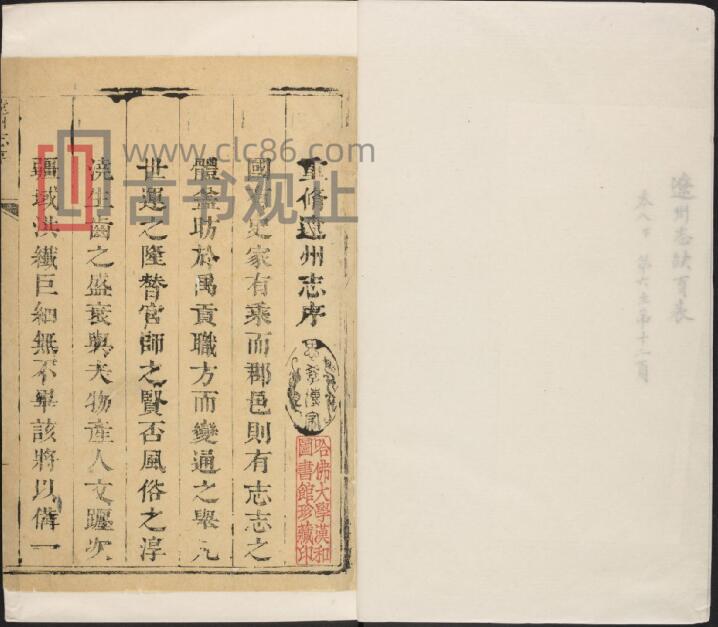 遼州志缺頁表
卷八下 第六至第十二頁
重修遼州志序
哈佛大學漢和
圖書館珍藏印
國有史家有乘而郡邑則有志志之
體蓋昉於禹貢職方而變通之舉凡
世運之隆替官師之賢否風俗之淳
澆生齒之盛衰與夫物產人文躔次
疆域洪纖巨細無不畢該將以備一
www.clc86.com
古书观止